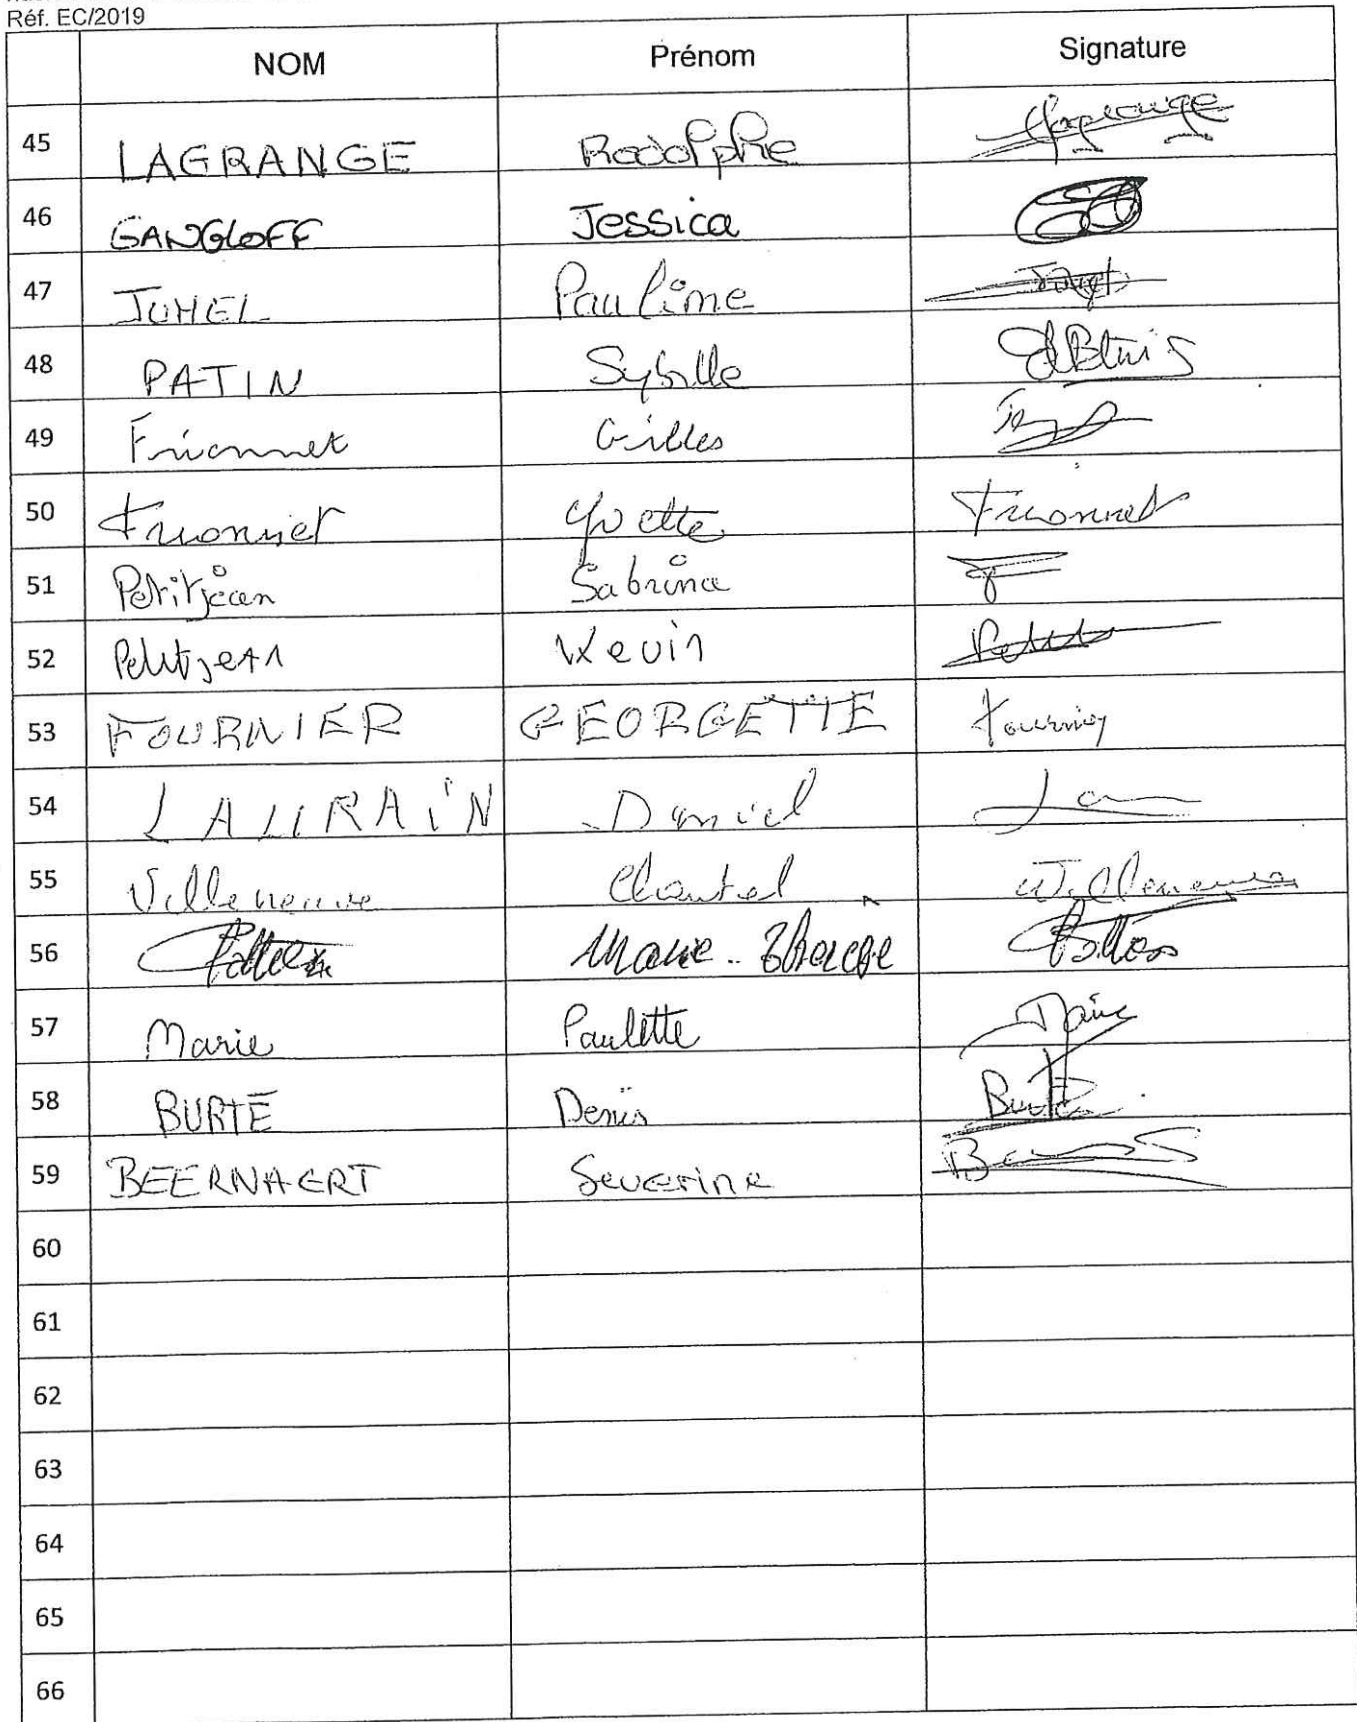 Réf. EC/2019
NOM Prénom Signature
45 LAGRANGE Rodolphe Lagrange
46 GANGLOFF Jessica
47 JUHEL Pauline
48 PATIN Sybille
49 Frionnet Gilles
50 Frionnet Yvette Frionnet
51 Petitjean Sabrina
52 Petitjean Kevin
53 FOURNIER GEORGETTE Fournier
54 LAURAIN Daniel
55 Villeneuve Chantal Villeneuve
56 Marie-Thérèse
57 Marie Paulette Marie
58 BURTÉ Denis Burté
59 BEERNAERT Severine
60
61
62
63
64
65
66